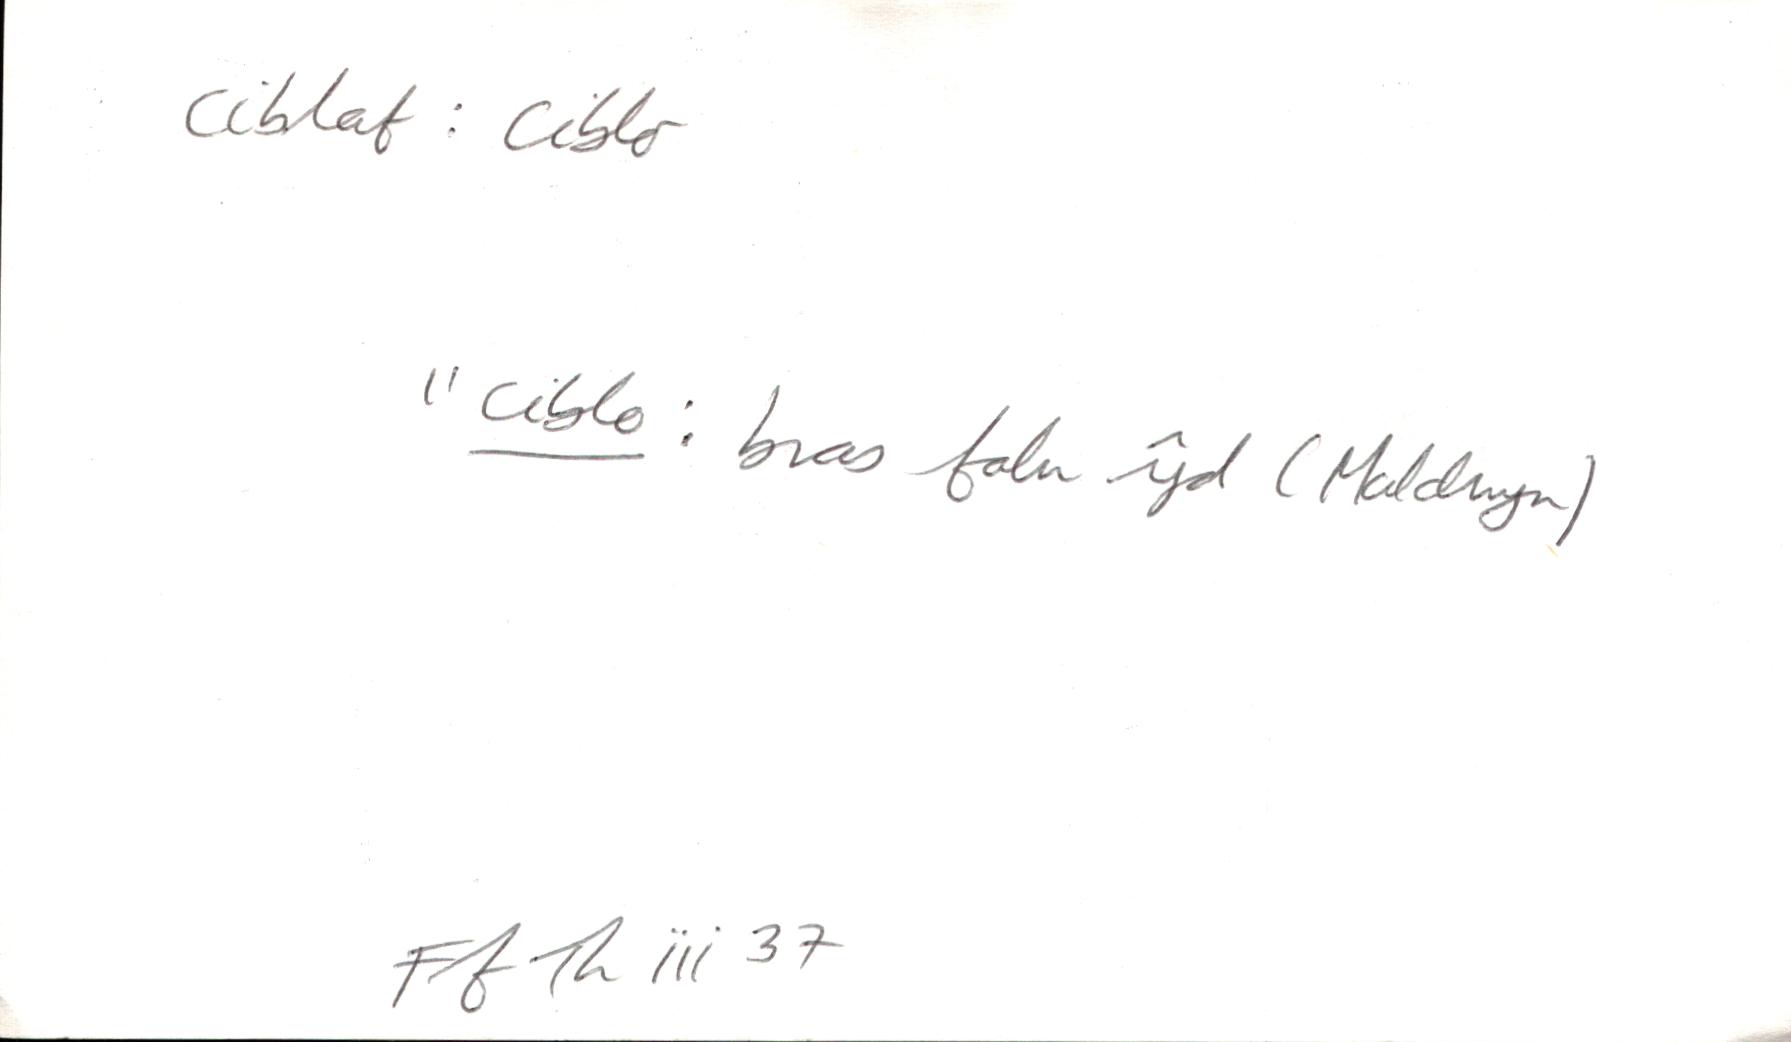 ciblaf : ciblo
"ciblo : bras falu ŷd (Maldwyn)
Ff Th iii 37